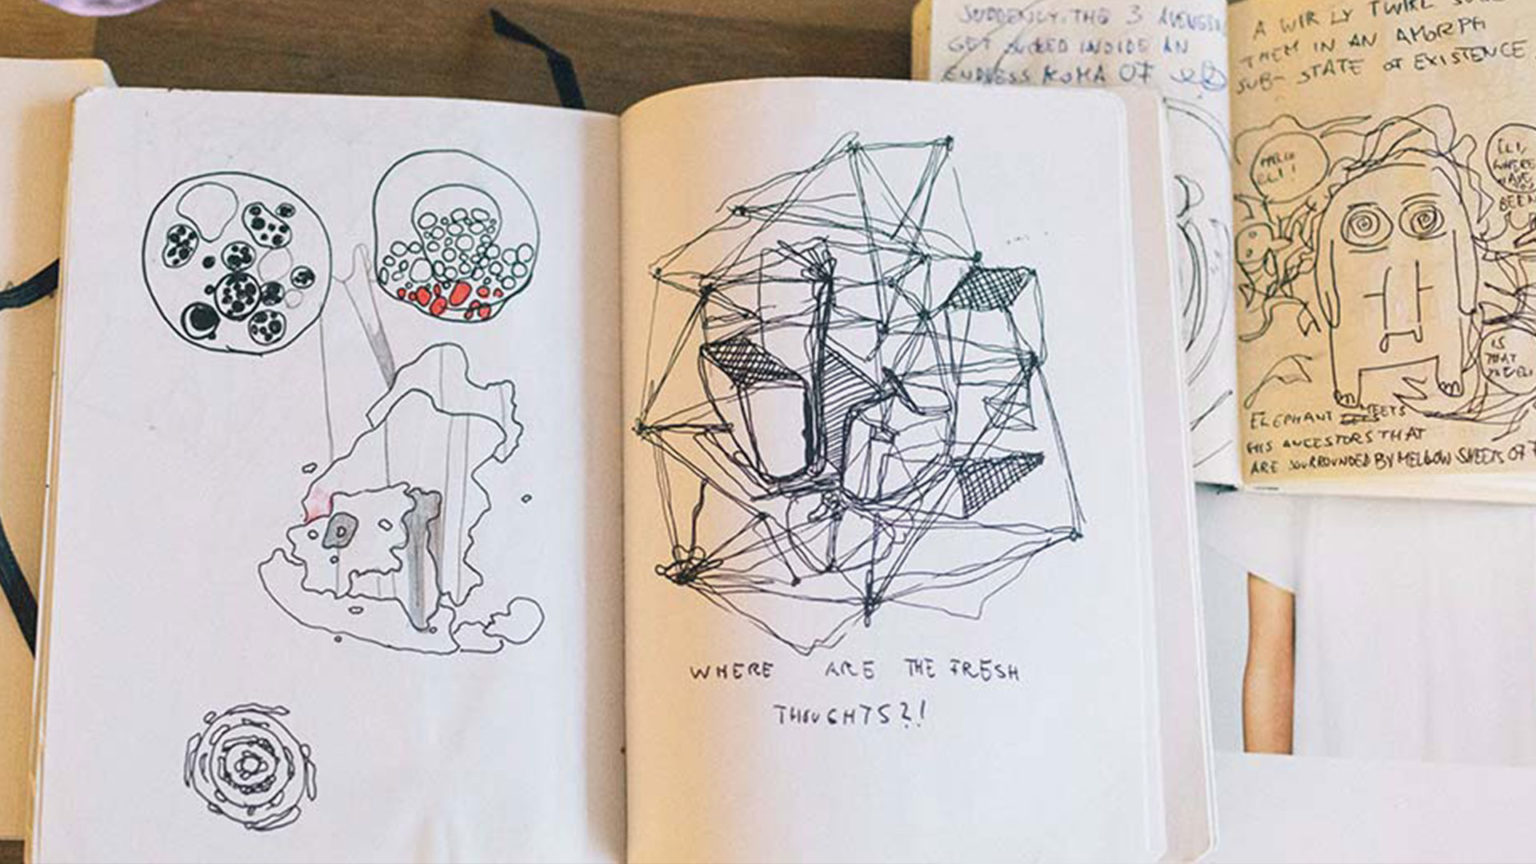 WHERE ARE THE FRESH
THOUGHTS?!
SUDDENLY, THE 3
GET SUCKED INSIDE AN
ENDLESS KOMA OF
A WIRLY TWIRL
THEM IN AN AMORPH
SUB-STATE OF EXISTENCE
HELLO
ELI!
ELI,
WHERE
HAVE
BEEN
IS
THAT
ELEPHANT MEETS
HIS ANCESTORS THAT
ARE SURROUNDED BY MELLOW SHEETS OF
D